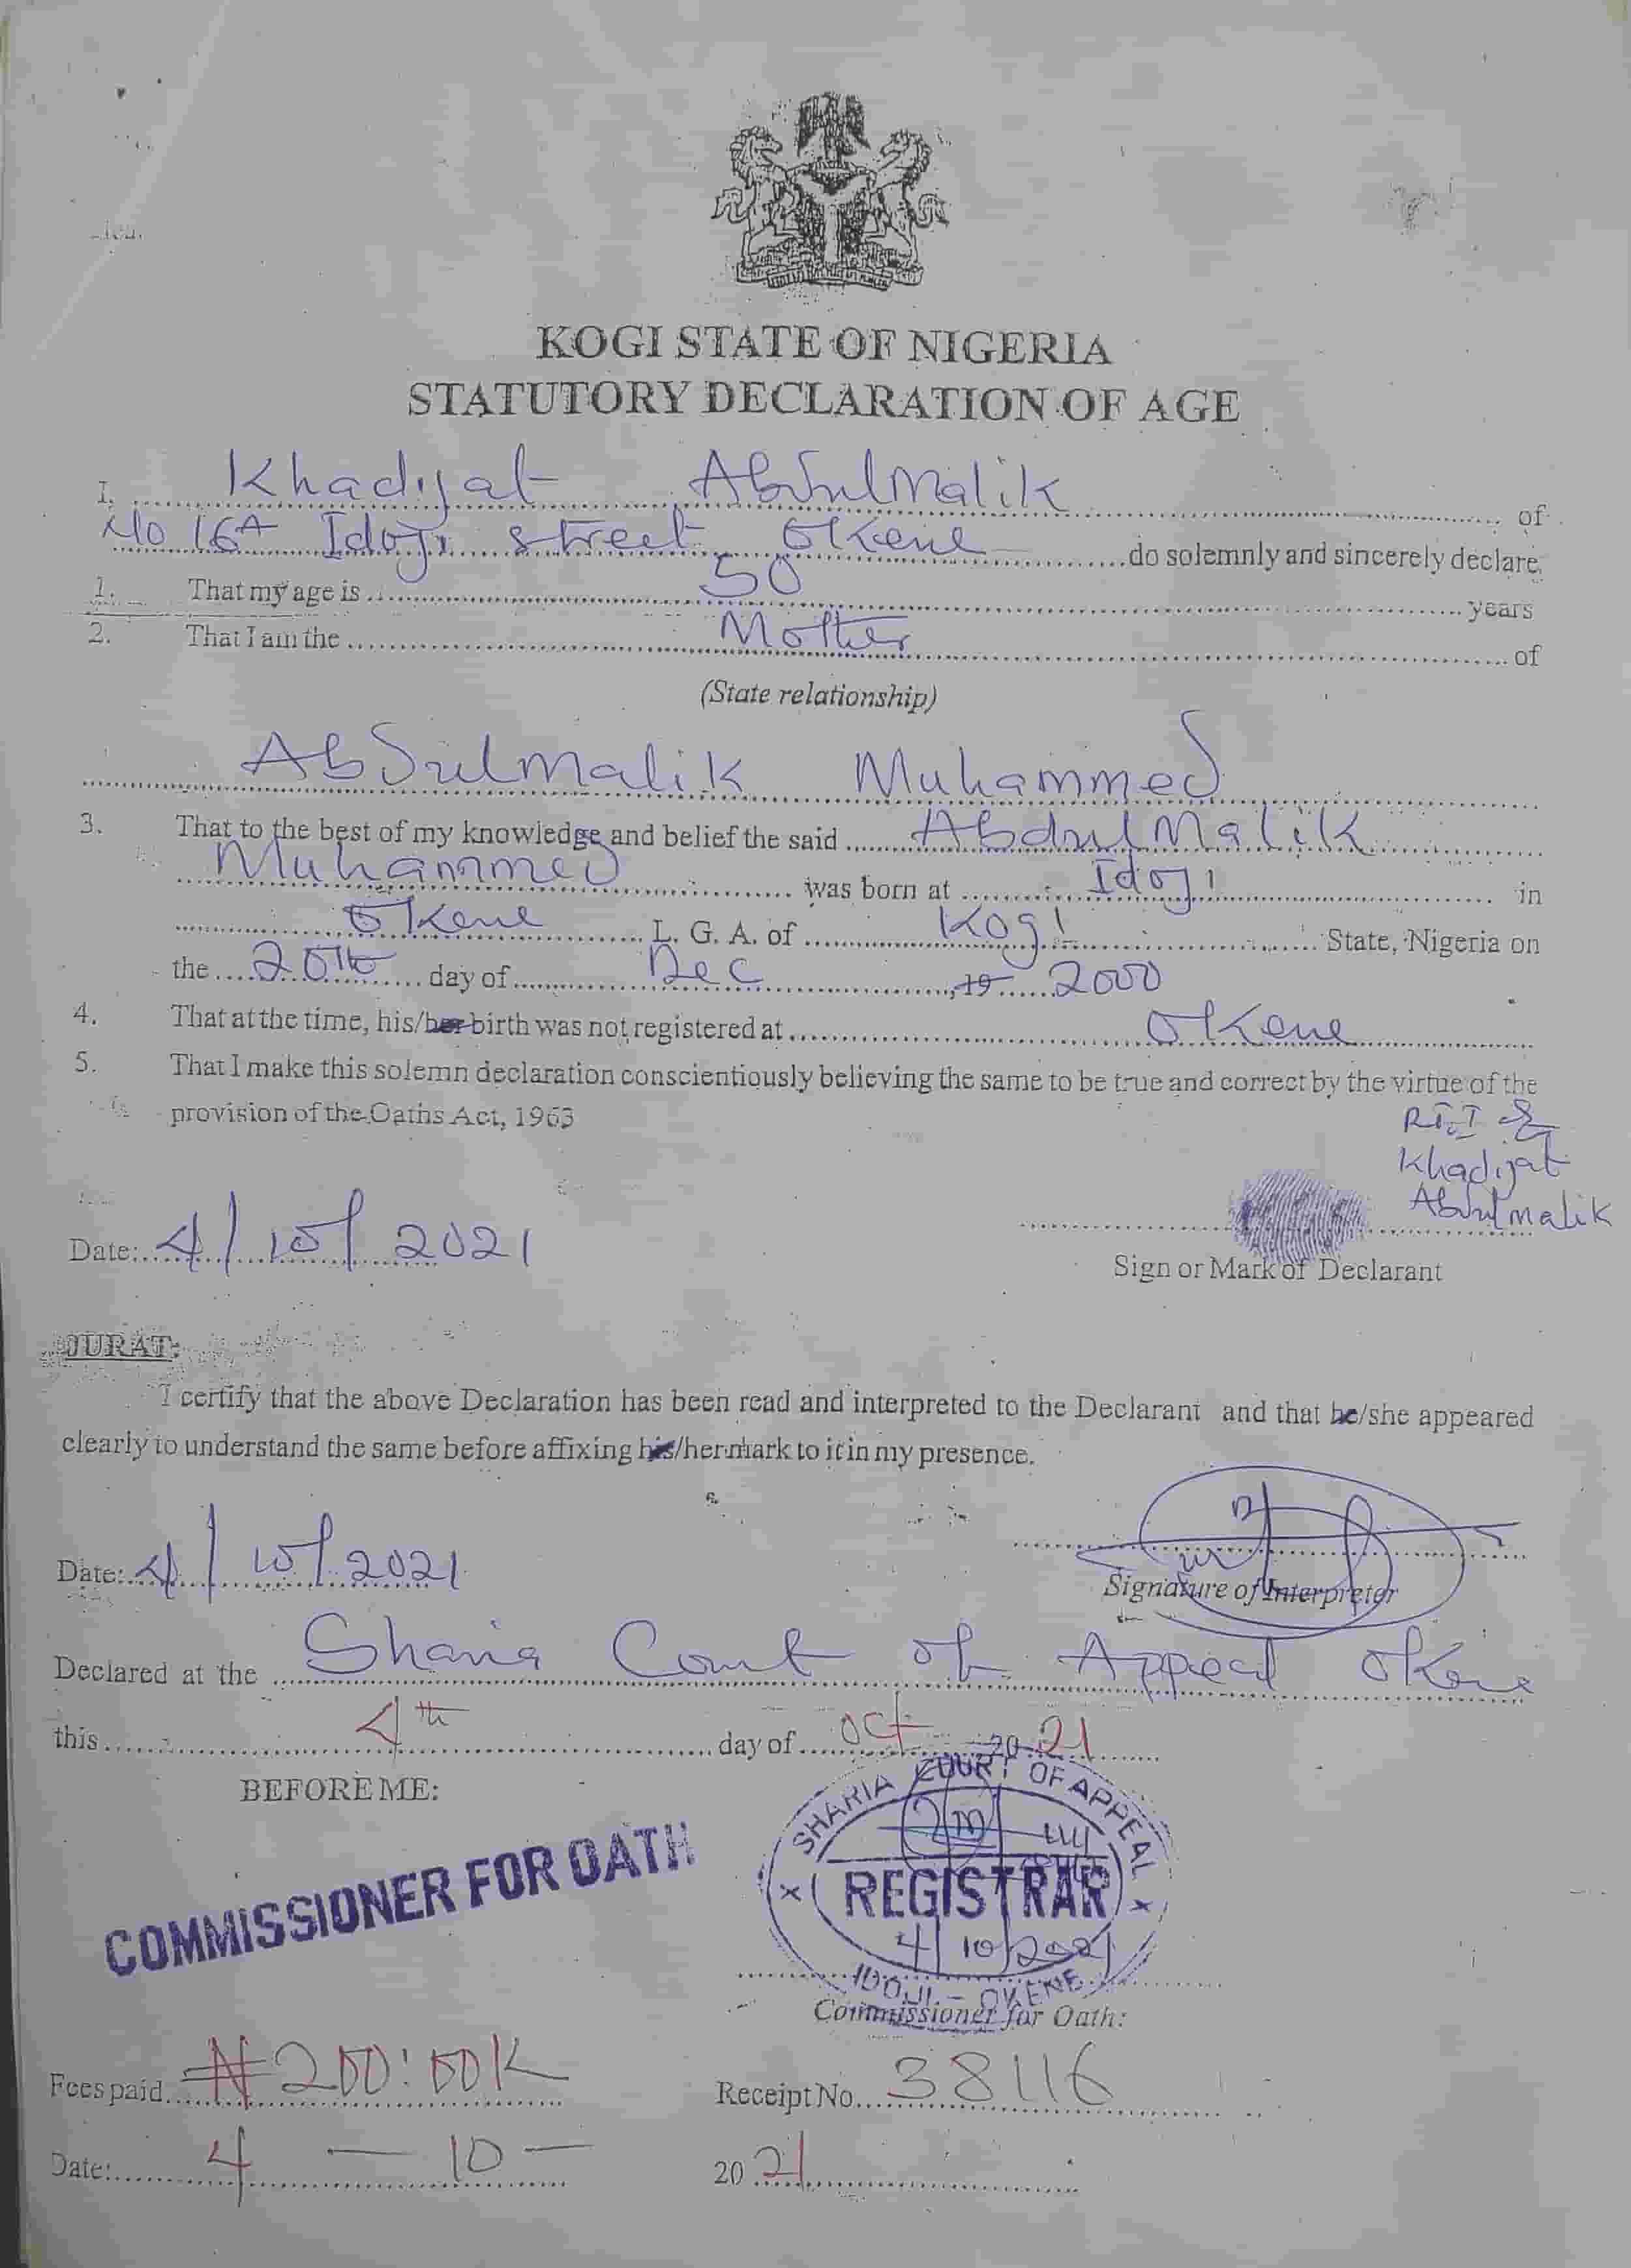 KOGI STATE OF NIGERIA
STATUTORY DECLARATION OF AGE
I, Khadijat Abdulmalik of
No 16A Idoji street Okene do solemnly and sincerely declare,
1. That my age is 50 years
2. That I am the Mother of
(State relationship)
Abdulmalik Muhammed
3. That to the best of my knowledge and belief the said Abdulmalik
Muhammed was born at Idoji in
Okene L. G. A. of Kogi State, Nigeria on
the 20th day of Dec, 19 2000
4. That at the time, his/her birth was not registered at Okene
5. That I make this solemn declaration conscientiously believing the same to be true and correct by the virtue of the
provision of the Oaths Act, 1963
Khadijat
Abdulmalik
Date: 4/10/2021
Sign or Mark of Declarant
JURAT:
I certify that the above Declaration has been read and interpreted to the Declarant and that he/she appeared
clearly to understand the same before affixing his/her mark to it in my presence.
Date: 4/10/2021
Signature of Interpreter
Declared at the Sharia Court of Appeal Okene
this 4th day of Oct 2021
BEFORE ME:
COMMISSIONER FOR OATH
SHARIA COURT OF APPEAL
REGISTRAR
4/10/2021
IDOJI - OKENE
Commissioner for Oath:
Fees paid ₦200:00K Receipt No. 38116
Date: 4 - 10 - 2021